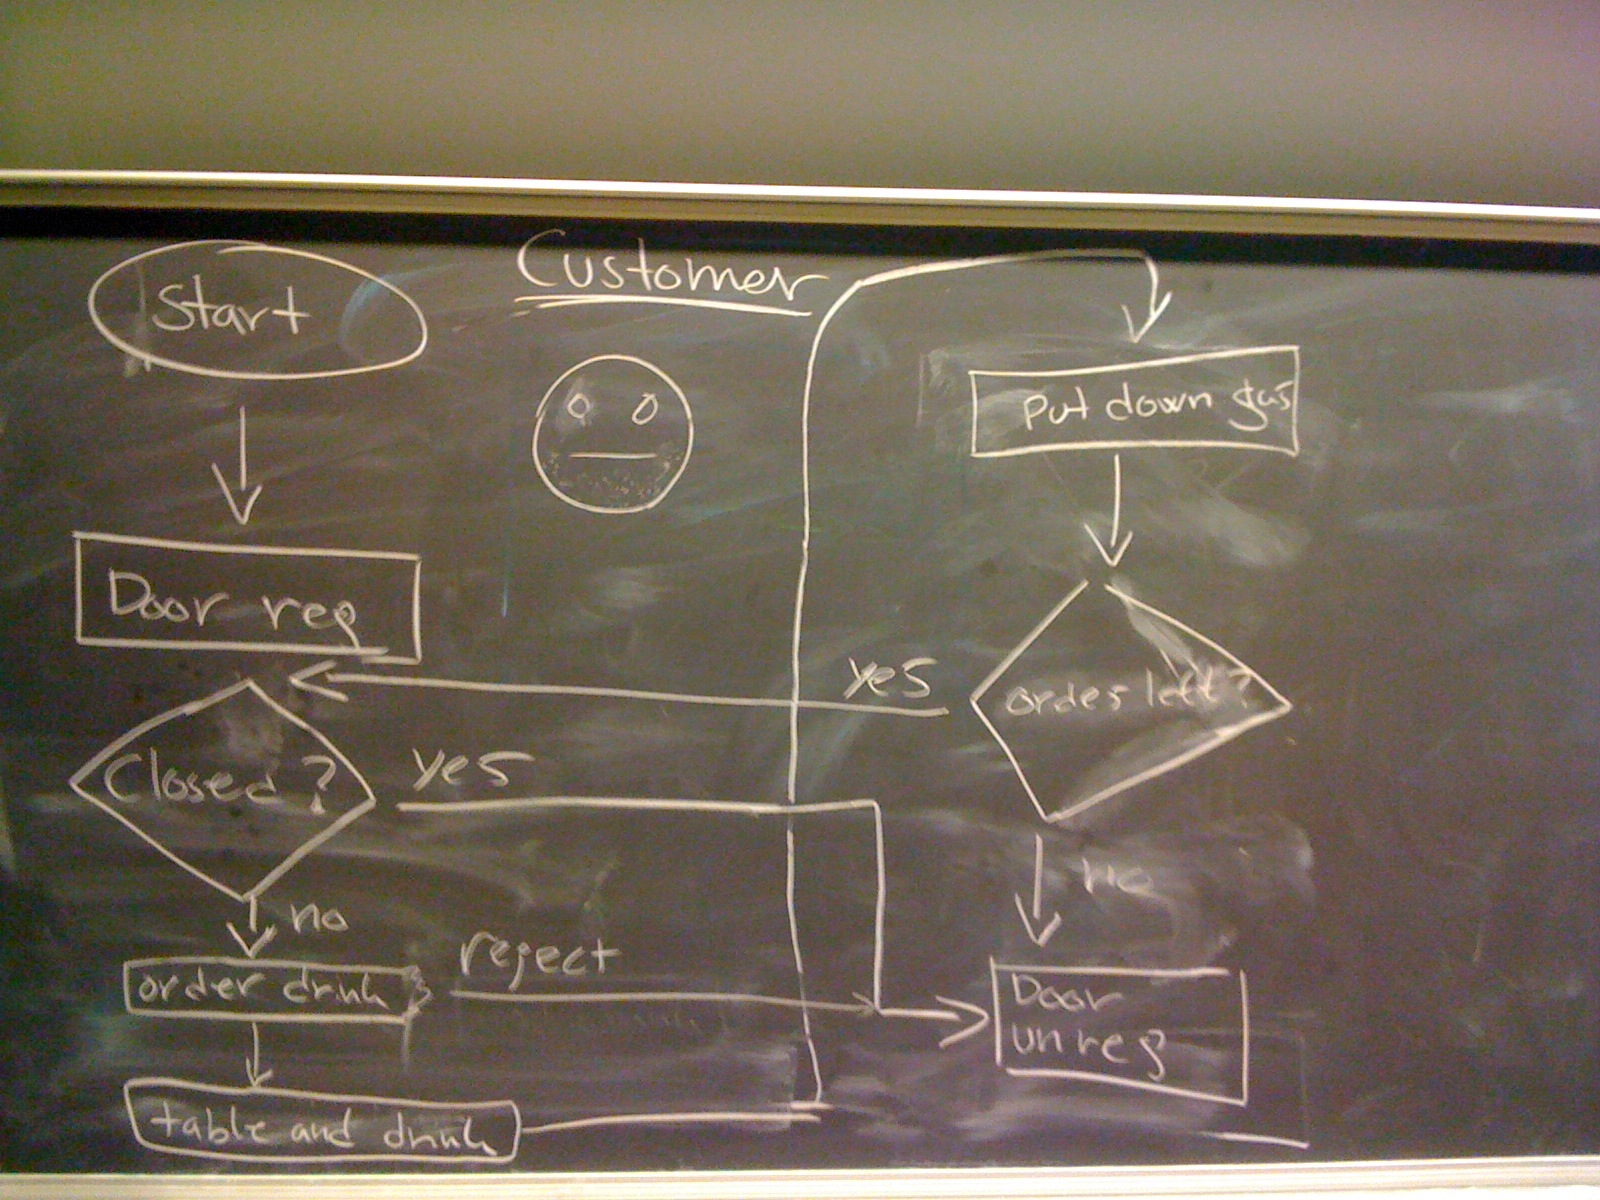 Customer
Start
Door reg
Closed?
yes
no
order drink
reject
table and drink
Put down glas
orders left?
yes
no
Door
unreg